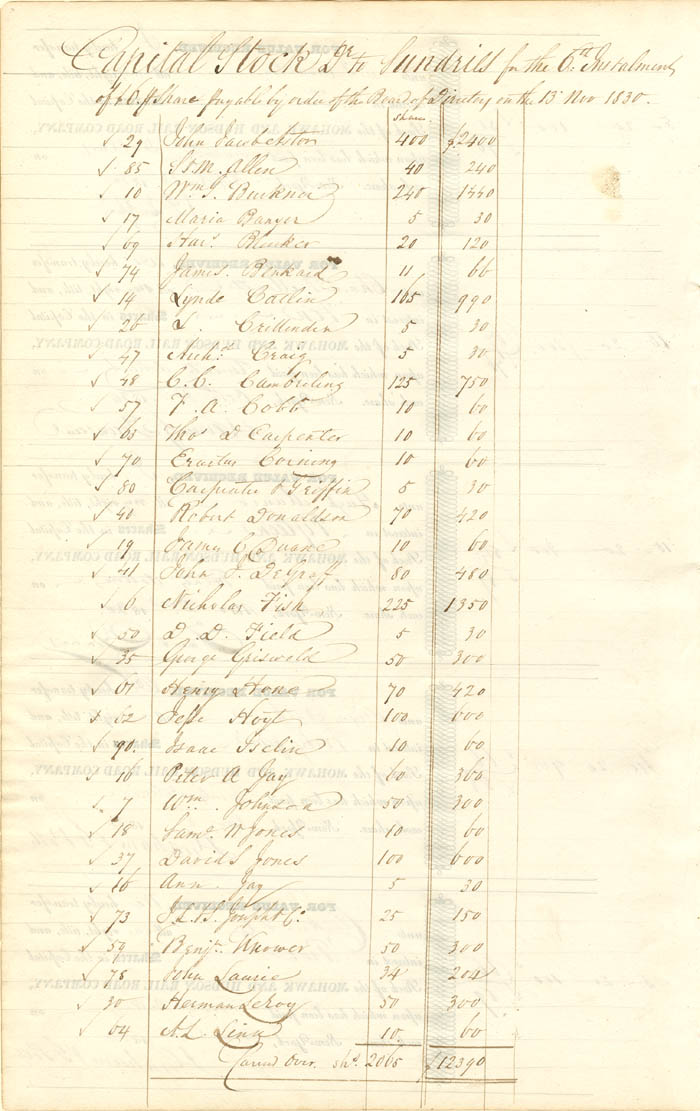 Capital Stock Dr to Sundries for the 6th Instalment
of $6 p Share payable by order of the Board of Directors on the 13 Nov 1830.
Shares
√ 29 John 400 $2400
√ 85 S. M. Allen 40 240
√ 10 Wm. S. Bucknor 240 1440
√ 17 Maria Banyer 5 30
√ 69 Har. Bleecker 20 120
√ 74 James Benkard 11 66
√ 14 Lynde Catlin 165 990
√ 26 L. Crittenden 5 30
√ 47 Craig 5 30
√ 48 C. C. Cambreling 125 750
√ 57 F. A. Cobb 10 60
√ 63 Thos D Carpenter 10 60
√ 70 Erastus Corning 10 60
√ 80 Carpenter & Griffin 5 30
√ 40 Robert Donaldson 70 420
√ 19 James C. Duane 10 60
√ 41 John I. DeGraff 80 480
√ 6 Nicholas Fish 225 1350
√ 50 D. D. Field 5 30
√ 35 George Griswold 50 300
√ 61 Henry Hone 70 420
√ 62 Jesse Hoyt 100 600
√ 90 Isaac Iselin 10 60
√ 46 Peter A Jay 60 360
√ 7 Wm. Johnson 50 300
√ 18 Saml. W Jones 10 60
√ 37 David S Jones 100 600
√ 16 Ann Jay 5 30
√ 73 J. L. & S. Joseph & Co. 25 150
√ 59 Benjn. Knower 50 300
√ 78 John Laurie 34 204
√ 30 Herman LeRoy 50 300
√ 64 A. L. Linn 10 60
Carried Over. Shs. 2065 $12390